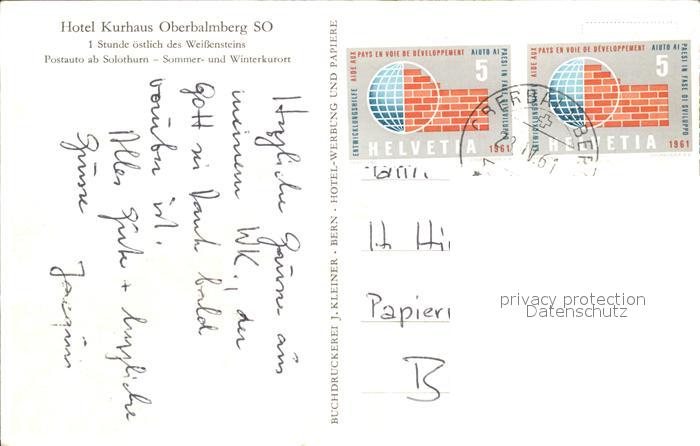 Hotel Kurhaus Oberbalmberg SO
1 Stunde östlich des Weißensteins
Postauto ab Solothurn – Sommer- und Winterkurort
Herzliche Grüsse aus
meinem WK., der
Gott sei Dank bald
vorüber ist.
Alles Gute + herzliche
Grüsse
BUCHDRUCKEREI J. KLEINER · BERN · HOTEL-WERBUNG UND PAPIERE
ENTWICKLUNGSHILFE AIDE AUX PAYS EN VOIE DE DÉVELOPPEMENT AIUTO AI PAESI IN FASE DI SVILUPPO
5
HELVETIA 1961
ENTWICKLUNGSHILFE AIDE AUX PAYS EN VOIE DE DÉVELOPPEMENT AIUTO AI PAESI IN FASE DI SVILUPPO
5
HELVETIA 1961
IV.61
Fam.
Papieri
privacy protection
Datenschutz